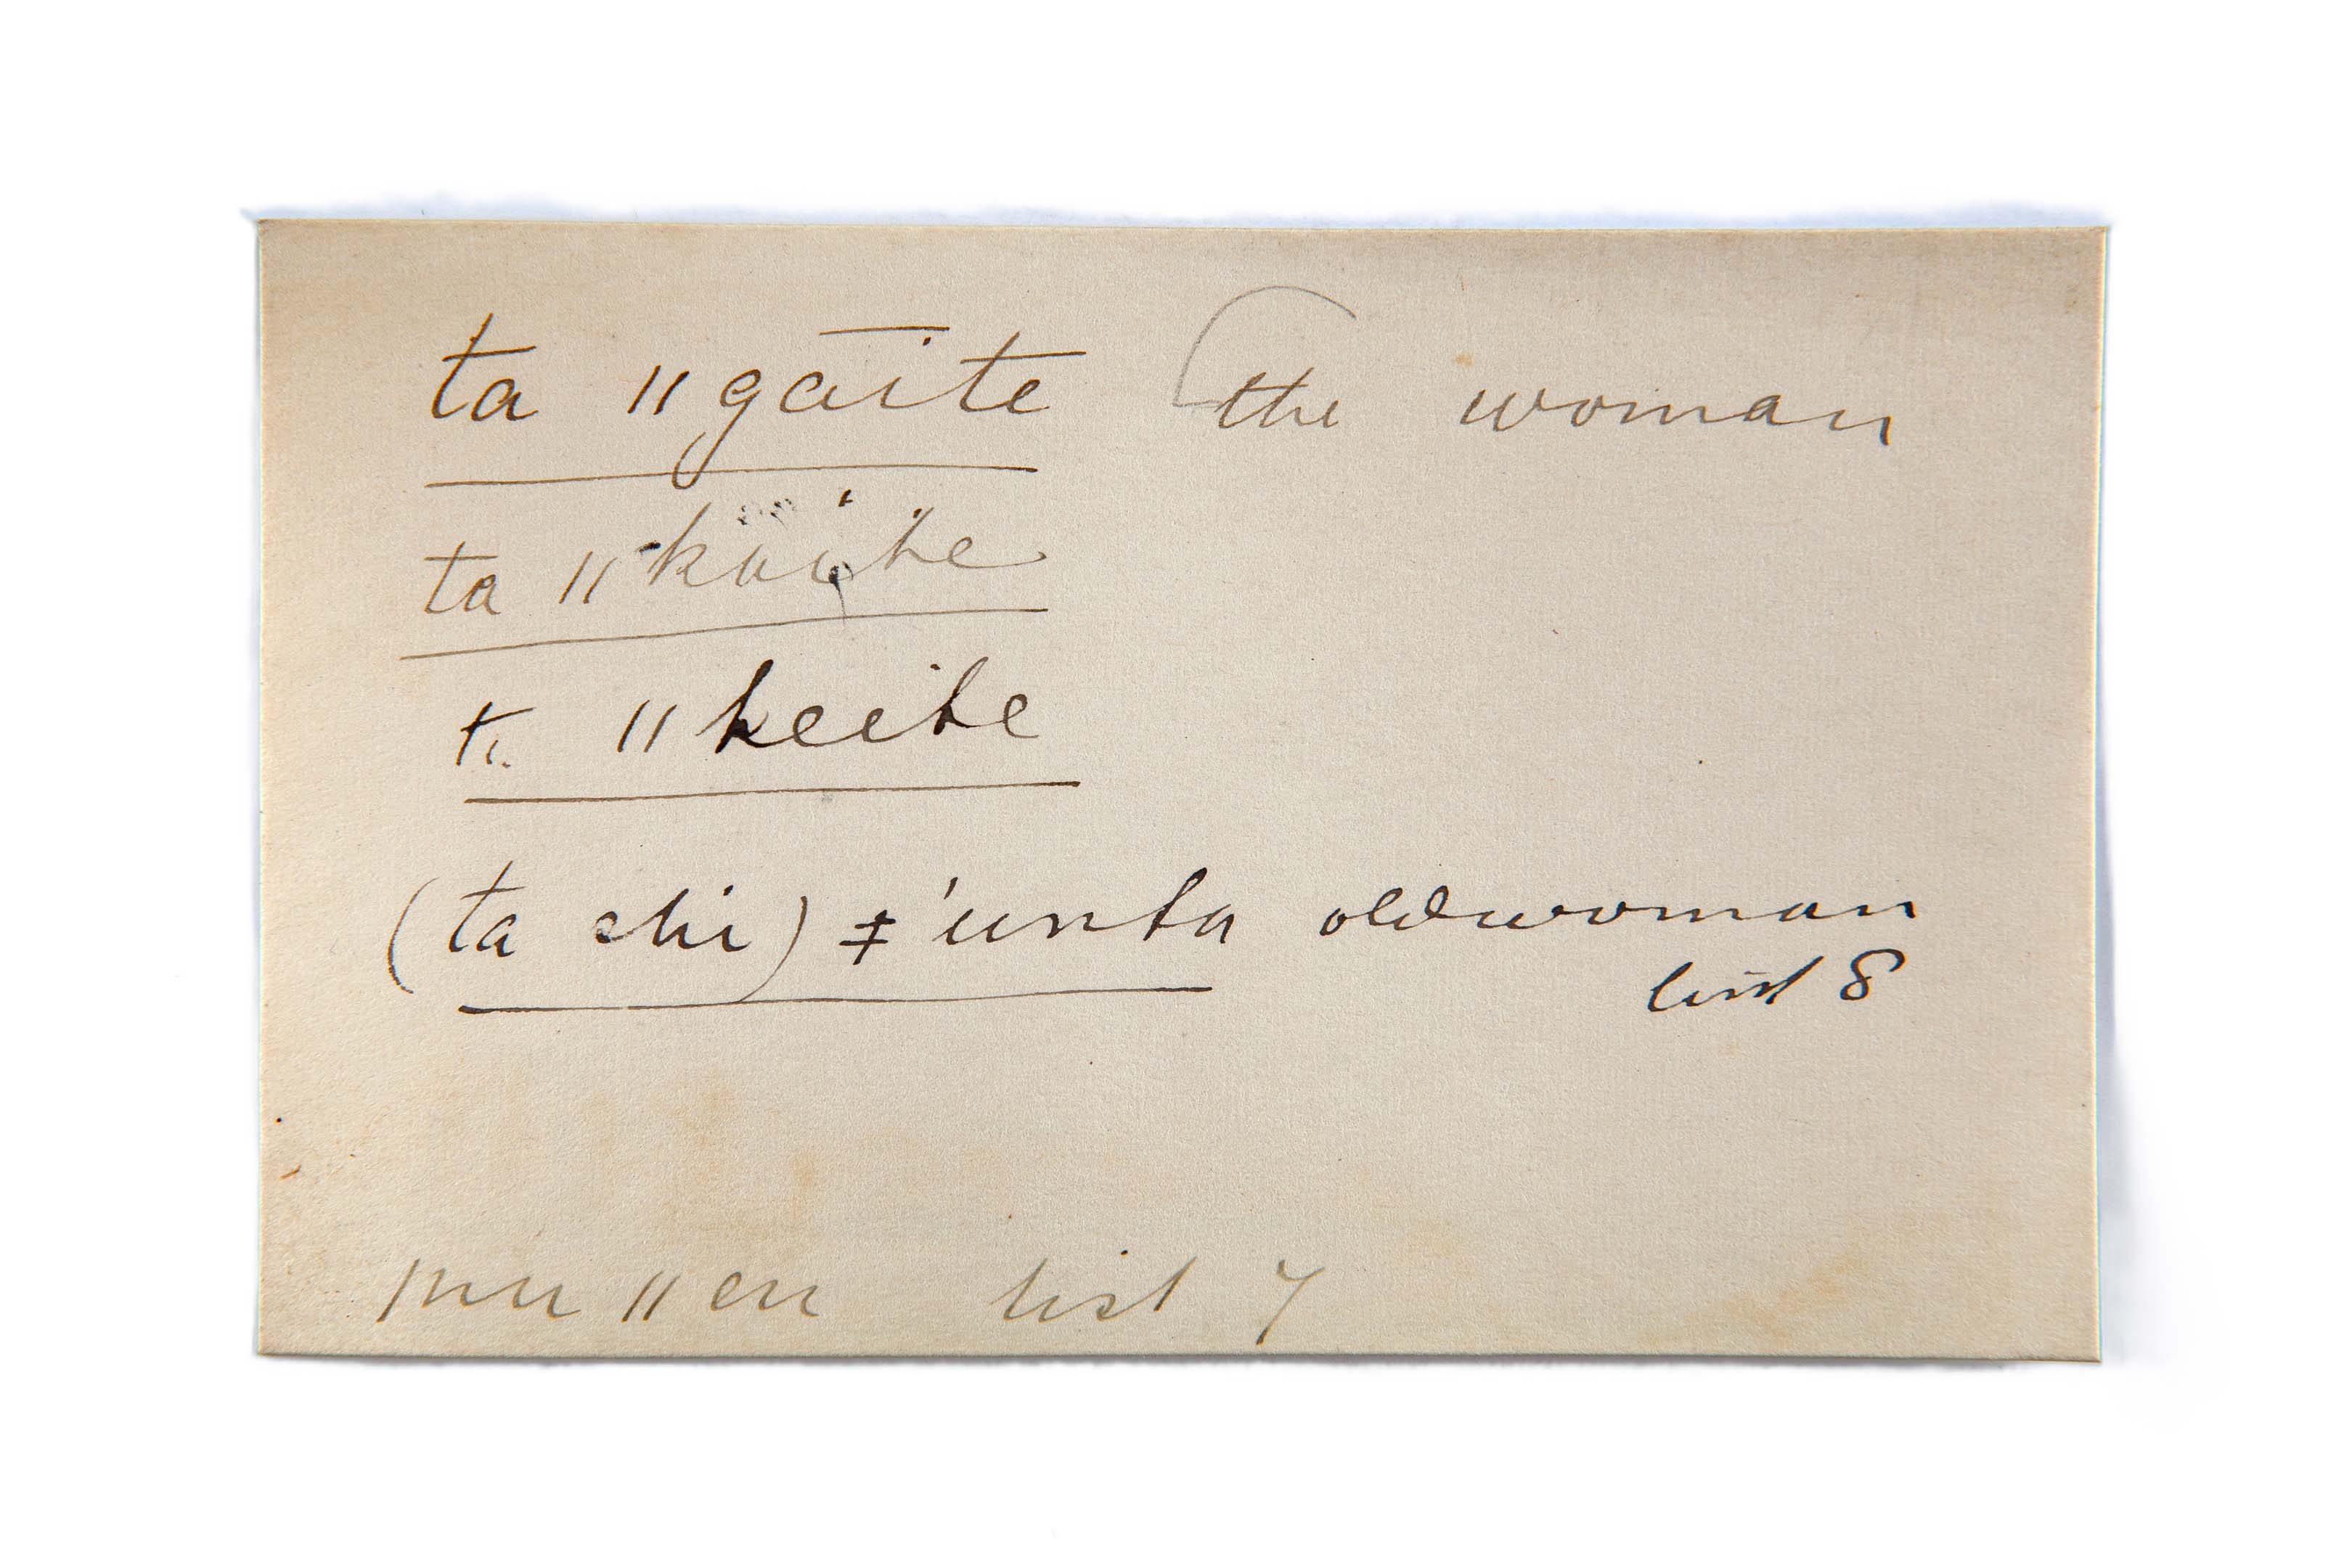 ta ǁgāite the woman
ta ǁkäïte
ti. ǁkeite
(ta chi) ǂ'unta old woman
list 8
ǁen list 7